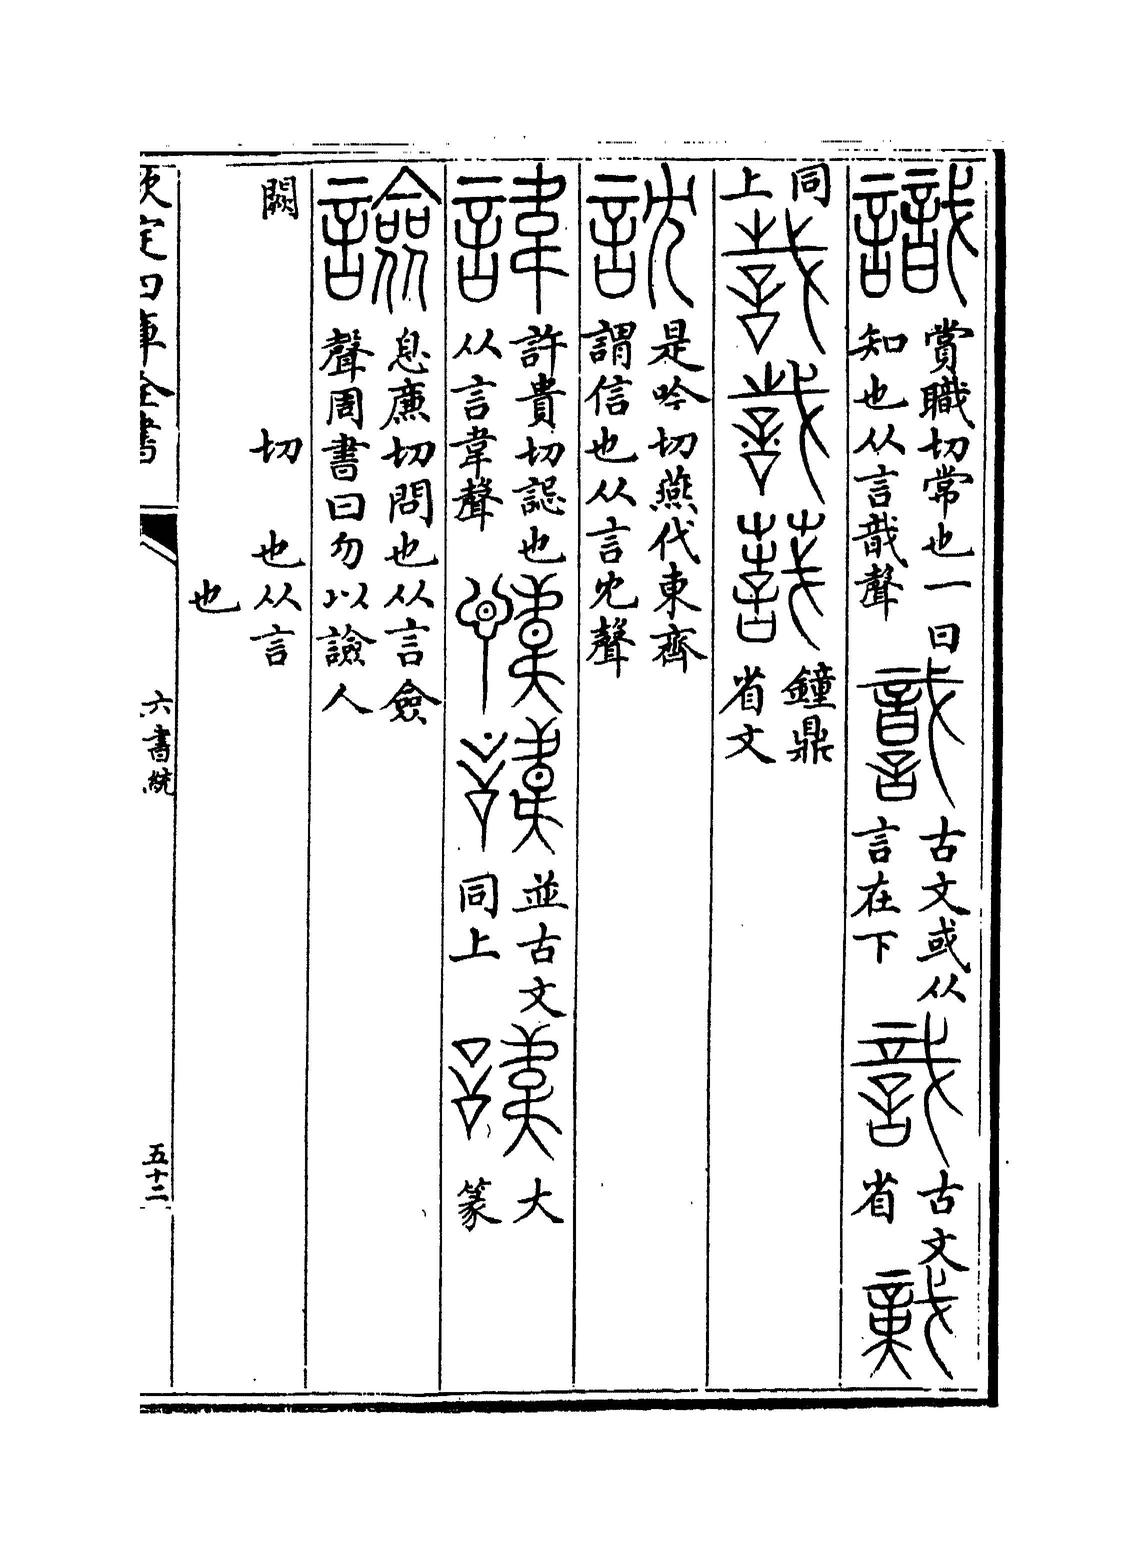 識 賞職切常也一曰
知也从言戠聲
古文或从
言在下
古文
省
同
上
鐘鼎
省文
訦 是吟切燕代東齊
謂信也从言冘聲
諱 許貴切誋也
从言韋聲
並古文
同上
大
篆
譣 息亷切問也从言僉
聲周書曰勿以譣人
闕 切 也从言
也
欽定四庫全書 六書統 五十二